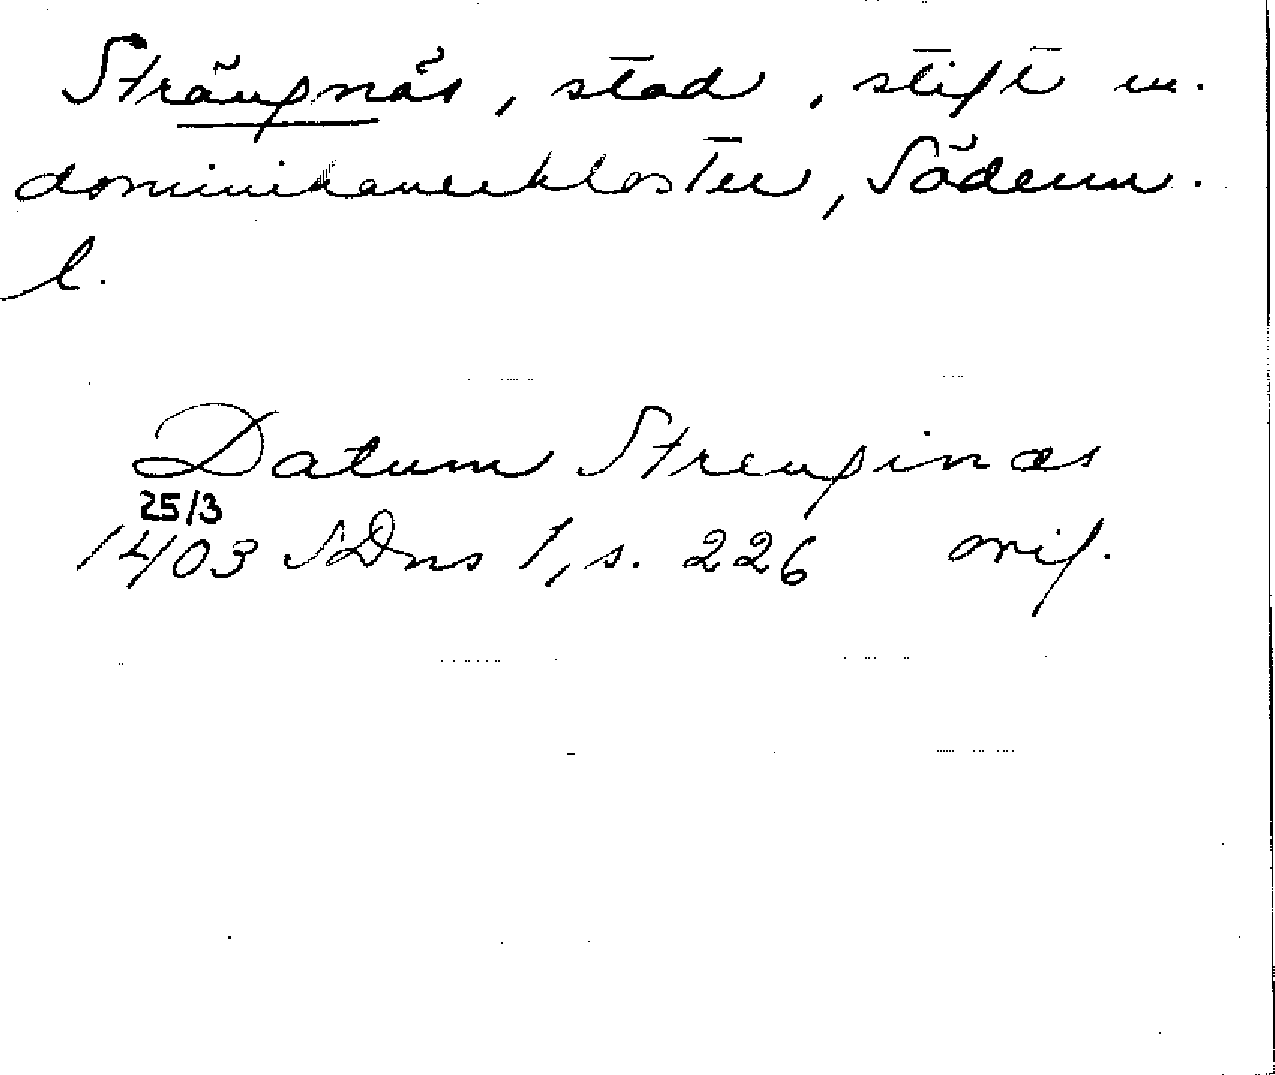 Strängnäs, stad, stift m.
dominikanerkloster, Söderm.
l.
Datum Strenginæs
25/3
1403 SDns 1, s. 226 orig.